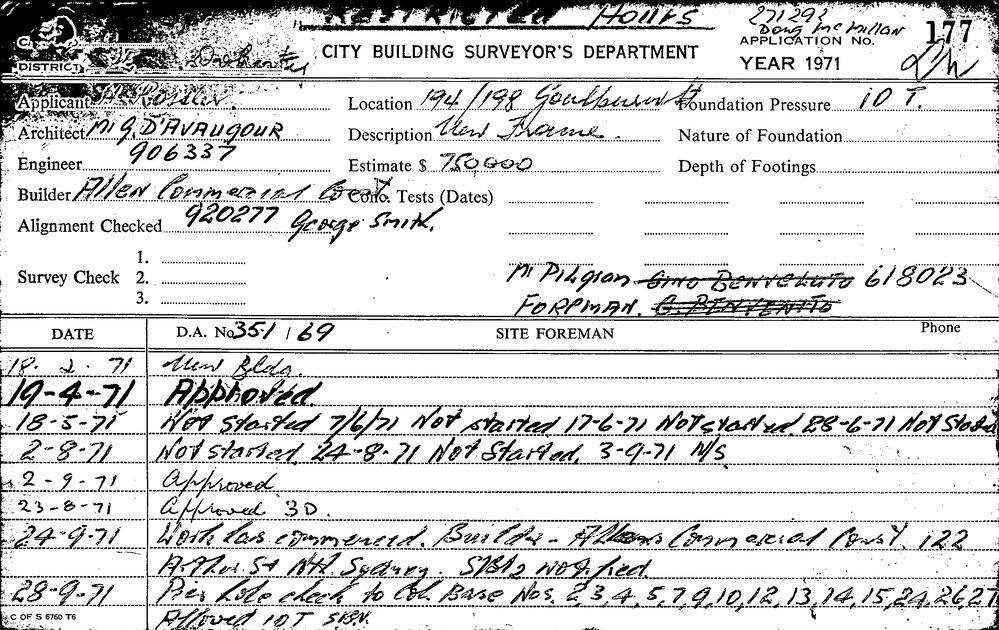 RESTRICTED HOURS
271292
Doug McMillan
CITY BUILDING SURVEYOR'S DEPARTMENT
APPLICATION No. 177
YEAR 1971
DISTRICT
Applicant Location 194/198 Goulburn St Foundation Pressure 10 T.
Architect Mr G. D'AVAUGOUR Description New Frame. Nature of Foundation
Engineer 906337 Estimate $ 750000 Depth of Footings
Builder Allen Commercial Const Conc. Tests (Dates)
Alignment Checked 920277 George Smith.
1.
Survey Check 2.
3.
Mr Pilgram Gino Benvenuto 618023
FOREMAN. G. BENVENITO
DATE D.A. No 351 / 69 SITE FOREMAN Phone
18. 2. 71 New Bldg.
19-4-71 Approved.
18-5-71 Not Started 7/6/71 Not started 17-6-71 Not started. 28-6-71 Not Started
2-8-71 Not started. 24-8-71 Not Started. 3-9-71 N/S
2-9-71 Approved
23-8-71 Approved 3D.
24-9-71 Work has commenced. Builder - Allens Commercial Const. 122
Arthur St Nth. Sydney. notified.
28-9-71 Pier hole check to Col. Base Nos. 2,3,4,5,7,9,10,12,13,14,15,24,26,27
Allowed 10T
C OF S 6760 T6